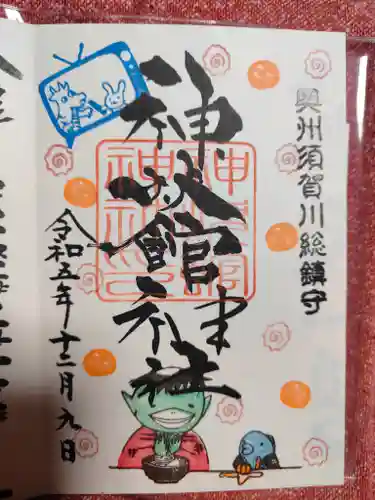 奥州須賀川総鎮守
神炊館神社
令和五年十二月九日